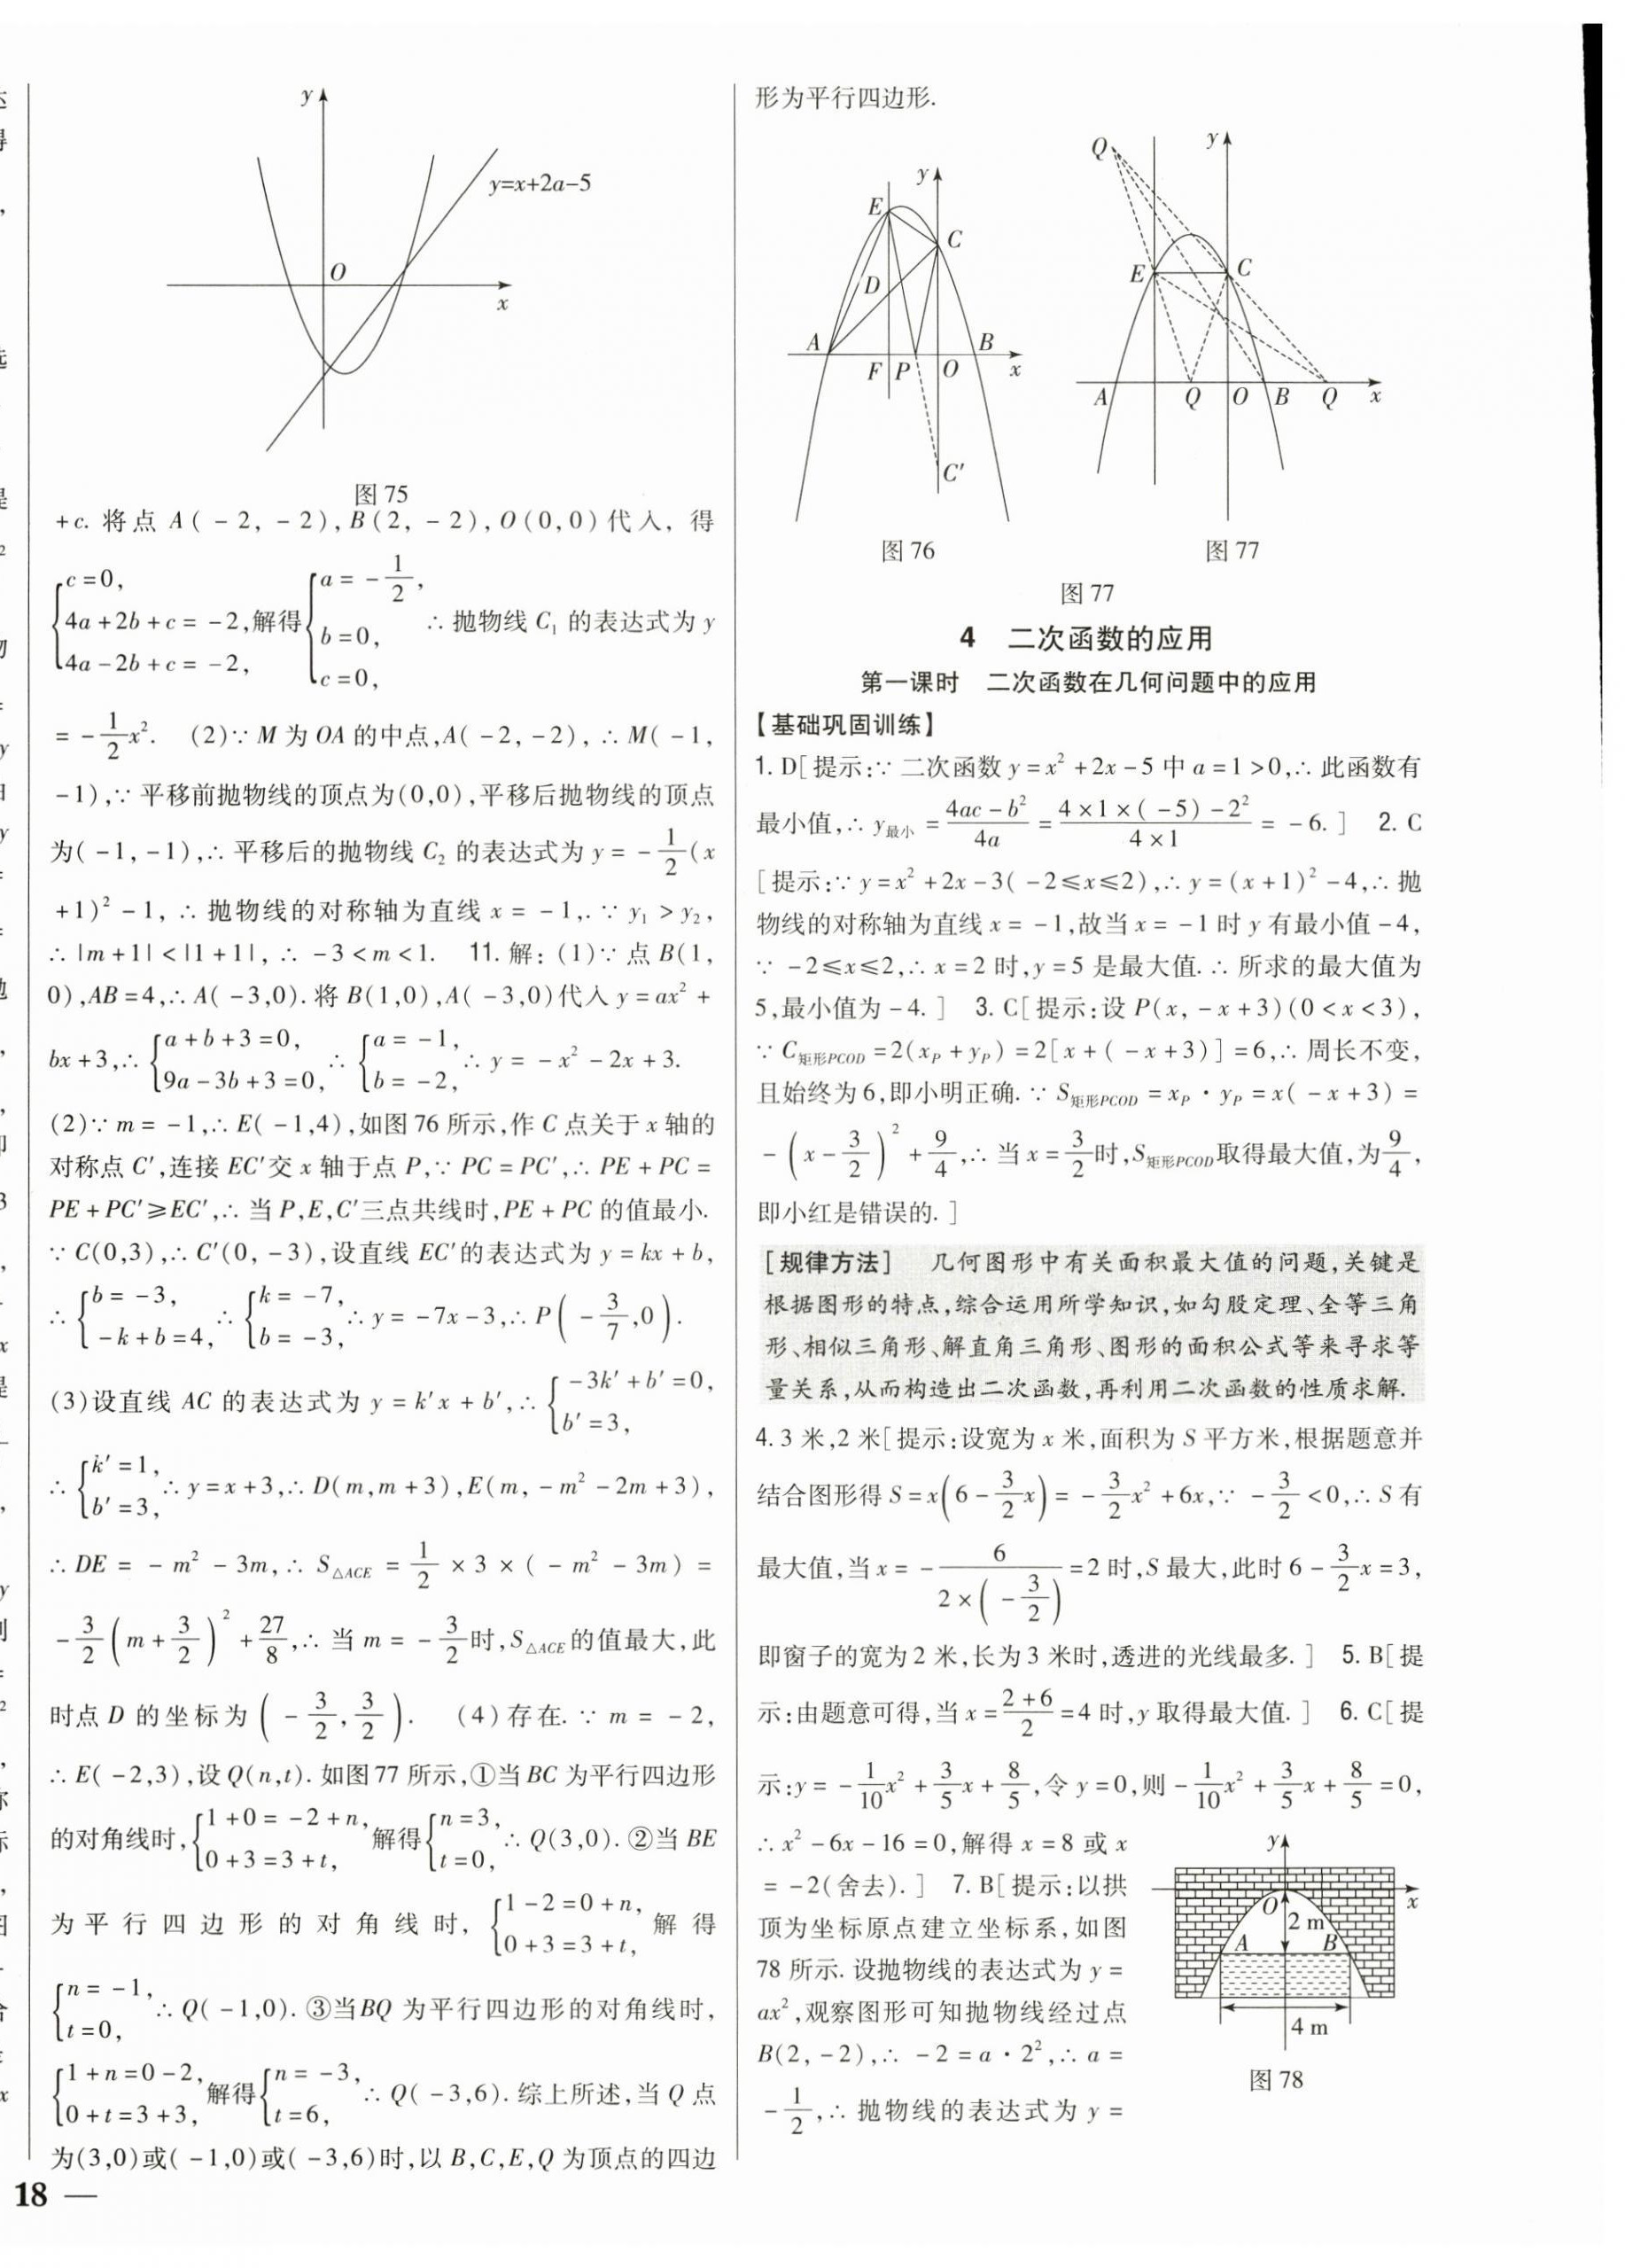 y
y=x+2a-5
O
x
图 75
+c. 将点 A(-2,-2),B(2,-2),O(0,0)代入,得
{c=0, 4a+2b+c=-2, 4a-2b+c=-2, 解得 {a=-1/2, b=0, c=0, ∴ 抛物线 C₁ 的表达式为 y
=-1/2x². (2)∵ M 为 OA 的中点,A(-2,-2), ∴ M(-1,
-1),∵ 平移前抛物线的顶点为(0,0),平移后抛物线的顶点
为(-1,-1),∴ 平移后的抛物线 C₂ 的表达式为 y=-1/2(x
+1)²-1, ∴ 抛物线的对称轴为直线 x=-1,.∵ y₁>y₂,
∴ |m+1|<|1+1|, ∴ -3<m<1. 11. 解: (1)∵ 点 B(1,
0),AB=4,∴ A(-3,0). 将 B(1,0),A(-3,0)代入 y=ax²+
bx+3,∴ {a+b+3=0, 9a-3b+3=0, ∴ {a=-1, b=-2, ∴ y=-x²-2x+3.
(2)∵ m=-1,∴ E(-1,4),如图 76 所示,作 C 点关于 x 轴的
对称点 C′,连接 EC′交 x 轴于点 P,∵ PC=PC′,∴ PE+PC=
PE+PC′≥EC′,∴ 当 P,E,C′三点共线时,PE+PC 的值最小.
∵ C(0,3),∴ C′(0,-3),设直线 EC′的表达式为 y=kx+b,
∴ {b=-3, -k+b=4, ∴ {k=-7, b=-3, ∴ y=-7x-3,∴ P(-3/7,0).
(3)设直线 AC 的表达式为 y=k′x+b′,∴ {-3k′+b′=0, b′=3,
∴ {k′=1, b′=3, ∴ y=x+3,∴ D(m,m+3),E(m,-m²-2m+3),
∴ DE=-m²-3m,∴ S△ACE=1/2×3×(-m²-3m)=
-3/2(m+3/2)²+27/8,∴ 当 m=-3/2时,S△ACE的值最大,此
时点 D 的坐标为(-3/2,3/2). (4)存在. ∵ m=-2,
∴ E(-2,3),设 Q(n,t). 如图 77 所示,①当 BC 为平行四边形
的对角线时,{1+0=-2+n, 0+3=3+t, 解得{n=3, t=0, ∴ Q(3,0). ②当 BE
为平行四边形的对角线时,{1-2=0+n, 0+3=3+t, 解得
{n=-1, t=0, ∴ Q(-1,0). ③当BQ 为平行四边形的对角线时,
{1+n=0-2, 0+t=3+3, 解得{n=-3, t=6, ∴ Q(-3,6). 综上所述,当 Q 点
为(3,0)或(-1,0)或(-3,6)时,以 B,C,E,Q 为顶点的四边
18 —
形为平行四边形.
y
E
C
D
A
B
F
P
O
x
C′
图 76
Q
y
E
C
A
Q
O
B
Q
x
图 77
图 77
4 二次函数的应用
第一课时 二次函数在几何问题中的应用
【基础巩固训练】
1. D[提示:∵ 二次函数 y=x²+2x-5 中 a=1>0,∴ 此函数有
最小值,∴ y最小=(4ac-b²)/4a=(4×1×(-5)-2²)/(4×1)=-6. ] 2. C
[提示:∵ y=x²+2x-3(-2≤x≤2),∴ y=(x+1)²-4,∴ 抛
物线的对称轴为直线 x=-1,故当 x=-1 时 y 有最小值-4,
∵ -2≤x≤2,∴ x=2 时,y=5 是最大值. ∴ 所求的最大值为
5,最小值为-4. ] 3. C[提示:设 P(x,-x+3)(0<x<3),
∵ C矩形PCOD=2(xP+yP)=2[x+(-x+3)]=6,∴ 周长不变,
且始终为 6,即小明正确. ∵ S矩形PCOD=xP·yP=x(-x+3)=
-(x-3/2)²+9/4,∴ 当 x=3/2时,S矩形PCOD取得最大值,为9/4,
即小红是错误的. ]
[规律方法] 几何图形中有关面积最大值的问题,关键是
根据图形的特点,综合运用所学知识,如勾股定理、全等三角
形、相似三角形、解直角三角形、图形的面积公式等来寻求等
量关系,从而构造出二次函数,再利用二次函数的性质求解.
4. 3 米,2 米[提示:设宽为 x 米,面积为 S 平方米,根据题意并
结合图形得 S=x(6-3/2x)=-3/2x²+6x,∵ -3/2<0,∴ S 有
最大值,当 x=-6/(2×(-3/2))=2 时,S 最大,此时 6-3/2x=3,
即窗子的宽为 2 米,长为 3 米时,透进的光线最多. ] 5. B[提
示:由题意可得,当 x=(2+6)/2=4 时,y 取得最大值. ] 6. C[提
示:y=-1/10x²+3/5x+8/5,令 y=0,则-1/10x²+3/5x+8/5=0,
∴ x²-6x-16=0,解得 x=8 或 x
=-2(舍去). ] 7. B[提示:以拱
顶为坐标原点建立坐标系,如图
78 所示. 设抛物线的表达式为 y=
ax²,观察图形可知抛物线经过点
B(2,-2),∴ -2=a·2²,∴ a=
-1/2,∴ 抛物线的表达式为 y=
y
x
O
2 m
A
B
4 m
图 78